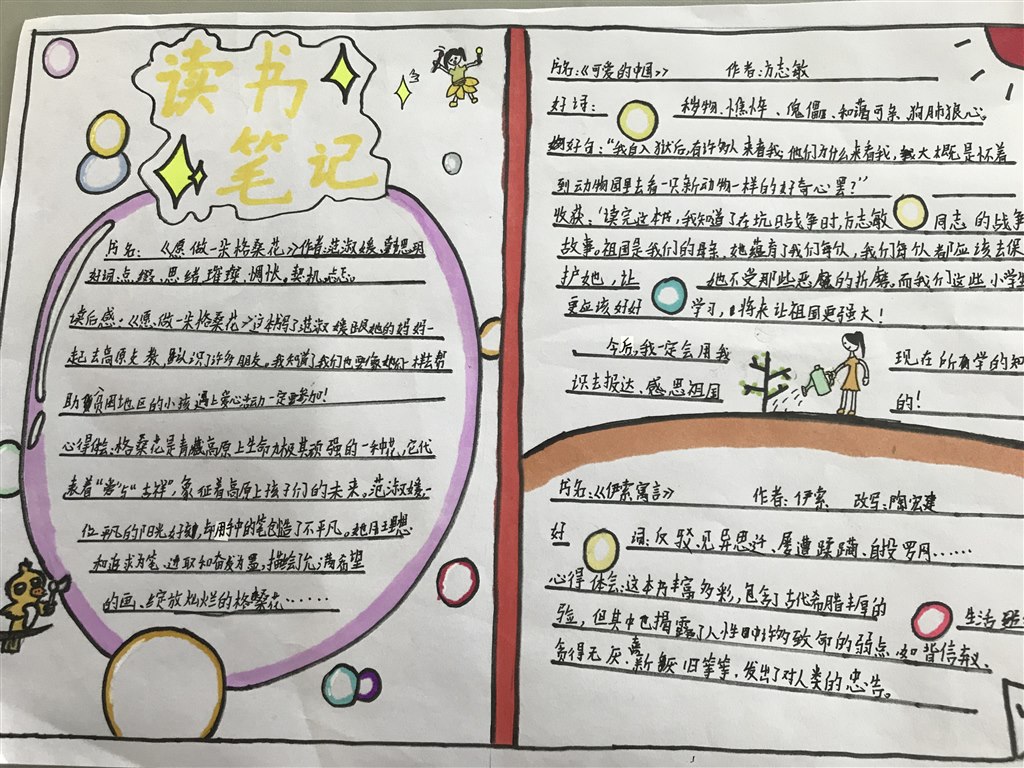 读书
笔记
片名:《愿做一朵格桑花》作者:范淑媛
好词:点缀、思绪、璀璨、惆怅、契机、忐忑。
读后感:《愿做一朵格桑花》这本书写了范淑媛跟她的妈妈一
起去高原支教,且认识了许多朋友。我知道了我们也要像她们一样去帮
助贫困地区的小孩,遇上爱心活动一定要参加!
心得体会:格桑花是青藏高原上生命力极其顽强的一种花,它代
表着“爱”与“吉祥”,象征着高原上孩子们的未来。范淑媛,一
位平凡的阳光好姑,却用手中的笔创造了不平凡。她用理想
和追求为笔,进取和奋发为墨,描绘了充满希望
的画、绽放灿烂的格桑花……
片名:《可爱的中国》 作者:方志敏
好词: 秽物、憔悴、傀儡、和蔼可亲、狗肺狼心。
好句:“我自入狱后,有许多人来看我;他们为什么来看我,大概是怀着
到动物园里去看一只新动物一样的好奇心罢?”
收获:读完这本书,我知道了在抗日战争时,方志敏同志的战争
故事。祖国是我们的母亲,她蕴育了我们每一个人,我们每个人都应该去保
护她,让她不受那些恶魔的折磨。而我们这些小学生
更应该好好学习,将来让祖国更强大!
今后,我一定会用我现在所有学的知
识去报达、感恩祖国的!
片名:《伊索寓言》 作者:伊索 改写:陶宏建
好词:反驳、见异思迁、屡遭蹂躏、自投罗网……
心得体会:这本书丰富多彩,包含了古代希腊丰厚的生活经
验,但其中也揭露了人性中许多致命的弱点,如背信弃义、
贪得无厌、喜新厌旧等等,发出了对人类的忠告。